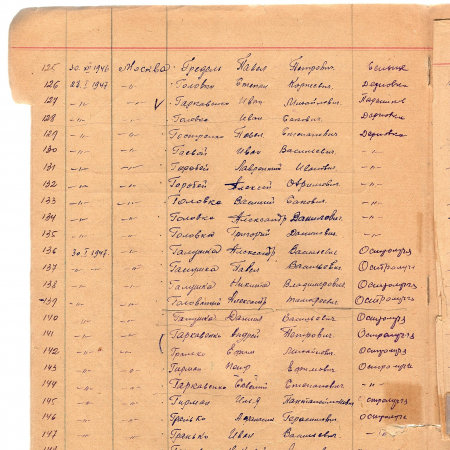 125 30 XI 1946 Москва Гредель Павел Петрович
126 28. I 1947 -"- Головко Степан Корнеевич Дедовка
127 -"- -"- Гаркавенко Иван Михайлович
128 -"- -"- Головко Иван Савович Дедовка
129 -"- -"- Павел Степанович Дедовка
130 -"- -"- Гаевой Иван Васильевич -"-
131 -"- -"- Горобей Лаврентий Иванович -"-
132 -"- -"- Горобей Алексей Ефимович -"-
133 -"- -"- Головко Василий Савович -"-
134 -"- -"- Головко Александр Данилович -"-
135 -"- -"- Головко Григорий Данилович -"-
136 30 I 1947 -"- Галушка Александр Васильевич Остролучья
137 -"- -"- Галушка Павел Васильевич Остролучья
138 -"- -"- Галушка Никита Владимирович Остролучья
139 -"- -"- Александр Остролучья
140 -"- -"- Галушка Даниил Васильевич Остролучья
141 -"- -"- Гаркавенко Андрей Петрович Остролучья
142 -"- -"- Ефим Михайлович Остролучья
143 -"- -"- Гирман Ефимович Остролучья
144 -"- -"- Гаркавенко Савелий Степанович -"-
145 -"- -"- Гирман Илья Остролучья
146 -"- -"- Гранько Герасимович Остролучья
147 -"- -"- Гранько Иван Васильевич -"-